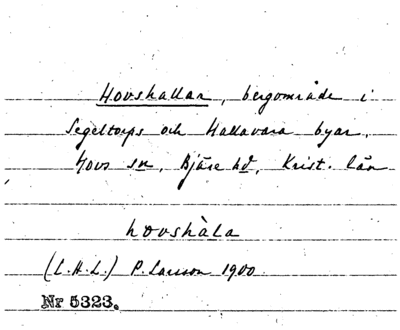 Hovshallar, bergområde i
Segeltorps och Hallavara byar,
Hovs sn, Bjäre hd, Krist. län
hovshàla
(L.H.L.) P. Larsson 1900
Nr 5323.